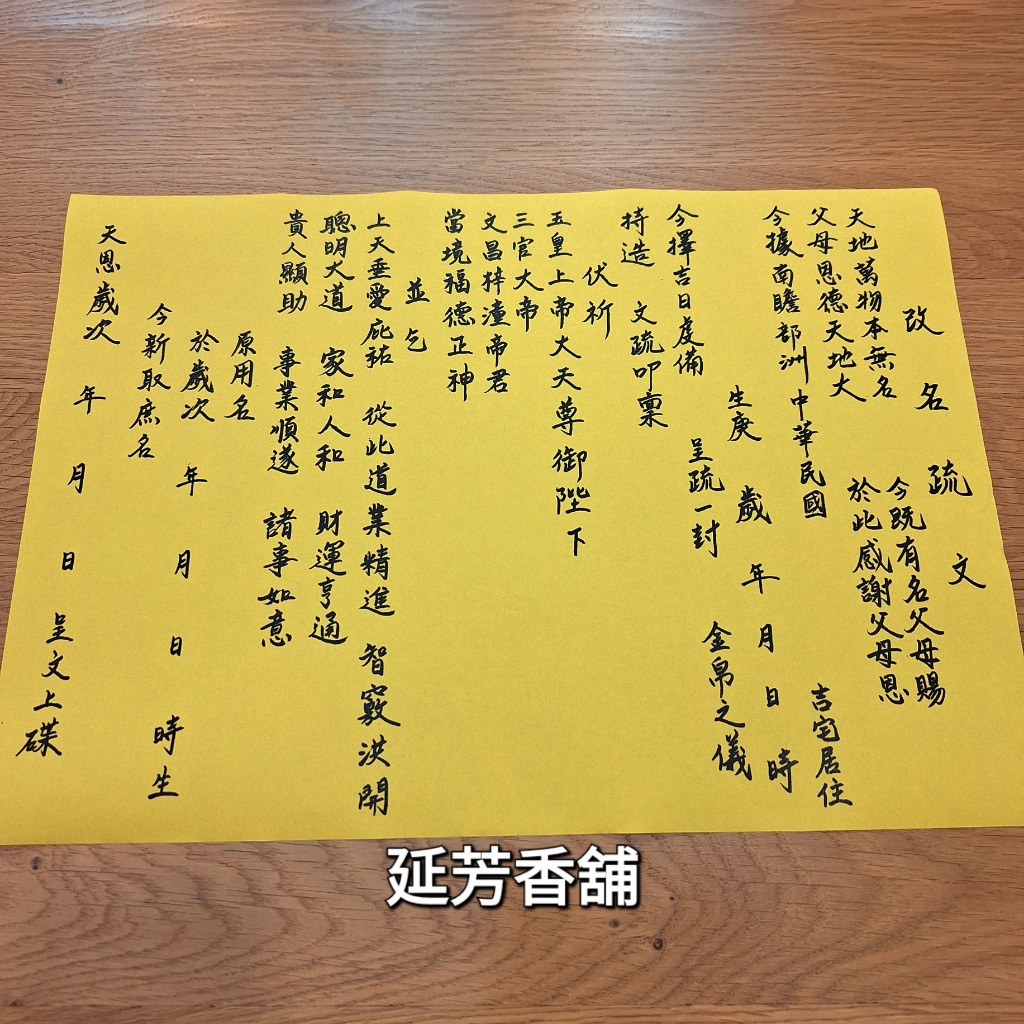 改名疏文
天地萬物本無名 今既有名父母賜
父母恩德天地大 於此感謝父母恩
今據南瞻部洲 中華民國 吉宅居住
生庚 歲 年 月 日 時
今擇吉日虔備 呈疏一封 金帛之儀
持造 文疏叩稟
伏祈
五皇上帝大天尊御陛下
三官大帝
文昌梓潼帝君
當境福德正神
並乞
上天垂愛庇祐 從此道業精進 智竅洪開
聰明大道 家和人和 財運亨通
貴人顯助 事業順遂 諸事如意
原用名
於歲次 年 月 日 時生
今新取庶名
天恩歲次 年 月 日 呈文上磔
延芳香舖